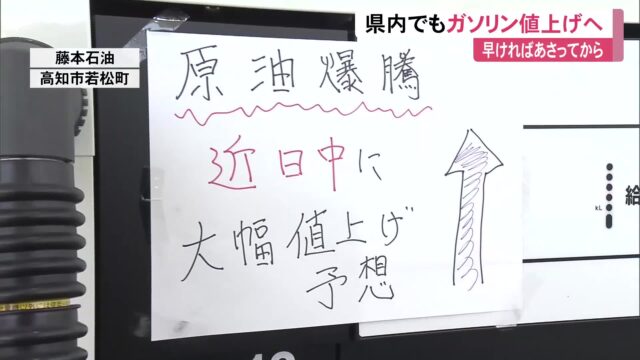 県内でもガソリン値上げへ
早ければあさってから
藤本石油
高知市若松町
原油爆騰
近日中に
大幅値上げ
予想
給
kL